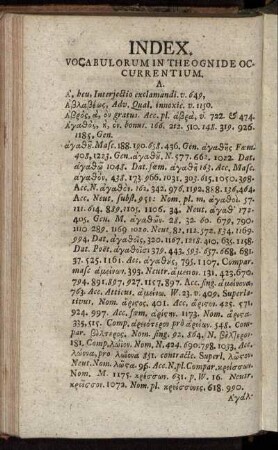 INDEX.
VOCABULORUM IN THEOGNIDE OC-
CURRENTIUM.
A.
Ἀ, heu, Interjectio exclamandi. v. 649,
Ἀβλαβέως, Adv. Qual. innoxie. v. 1150.
Ἁβρός, ά, όν gratus. Acc. pl. ἁβρά, v. 722. & 474.
Ἀγαθός, ἡ, όν. bonus. 166. 212. 510. 148. 319. 926.
1185. Gen.
ἀγαθῶ. Masc. 188. 190. 658. 436. Gen. ἀγαθῆς Fœm.
408, 1223. Gen. ἀγαθῶ, N. 577. 662. 1022. Dat.
ἀγαθῷ 1048. Dat. fœm. ἀγαθῇ 163. Acc. Masc.
ἀγαθόν, 438. 173. 966. 1031. 303. 615. 1050. 398.
Acc. N. ἀγαθόν. 161. 342. 976, 1192. 888. 136. 464.
Acc. Neut. subst. 951: Nom. pl. m. ἀγαθοί. 57.
111. 614. 889. 1105. 1106. 34. Neut. ἀγαθά 171.
405. Gen. M. ἀγαθῶν. 28. 32. 60. 679. 790.
1110. 289. 1169. 1020. Neut. 82, 112. 572. 834. 1169.
994. Dat. ἀγαθοῖς, 320. 1167. 1218. 410. 635. 1158.
Dat. Poët. ἀγαθοῖσι 379. 443. 593. 657. 668. 681.
37. 525. 1161. Acc. ἀγαθούς, 795. 1107. Compar.
masc ἀμείνων. 393. Neutr. ἄμεινον. 131. 423. 670.
794. 891. 897. 927. 1157. 897. Acc. sing. ἀμείνονα.
763. Acc. Atticus, ἀμείνω. W. 23. v. 409. Superla-
tivus, Nom. ἄριστος. 401. Acc. ἄριστον. 425. 571.
924. 997. Acc. fœm. ἀρίστην. 1173. Nom. ἄριστα.
335. 515. Comp. ἀρειότεροι pro ἀρείων. 548. Com-
par. βέλτερος. Nom. sing. 92. 864. N. βέλτερον
181. Comp. λώϊον. Nom. N. 424. 690. 798. 1033. Acc.
λώονα, pro λώονα 851. contractè. Superl. λῶστον.
Neut. Nom. λῶστα. 96. Acc. N. pl. Compar. κρείσσων.
Nom. M. 1175. κρέσσων. 631. p. W. 16. Neutr.
κρεῖσσον. 1072. Nom. pl. κρείσσονες. 618. 990.
Ἀγάλ-